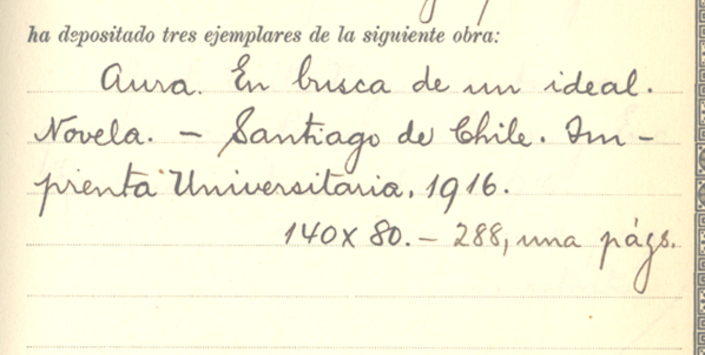 ha depositado tres ejemplares de la siguiente obra:
Aura. En busca de un ideal.
Novela. – Santiago de Chile. Im–
prenta Universitaria, 1916.
140 x 80. – 288, una págs.